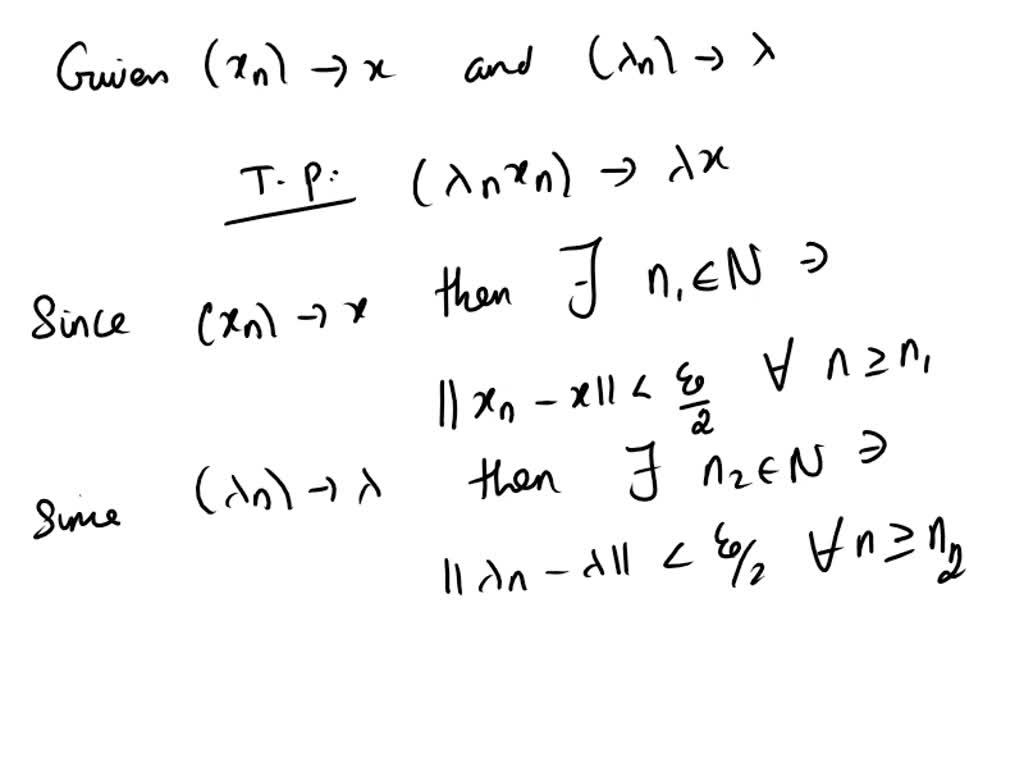 Given (xn) → x and (λn) → λ
T.P: (λnxn) → λx
Since (xn) → x then ∃ n1 ∈ N ∋
||xn - x|| < ε/2 ∀ n ≥ n1
Since (λn) → λ then ∃ n2 ∈ N ∋
||λn - λ|| < ε/2 ∀ n ≥ n2